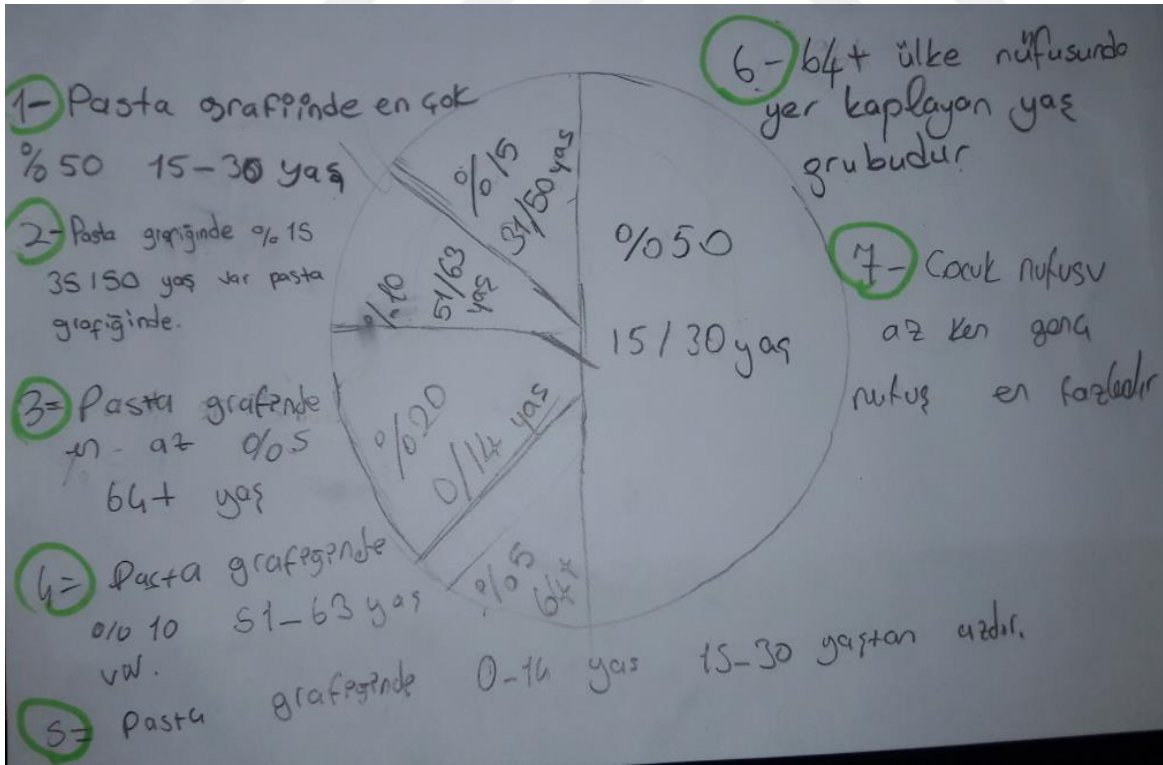 1- Pasta grafiinde en çok
%50 15-30 yaş
2- Pasta grafiğinde %15
35150 yaş var pasta
grafiğinde.
3= Pasta grafinde
en - az %5
64+ yaş
4= Pasta grafeginde
%10 51-63 yaş
var.
5= Pasta grafeginde 0-14 yas 15-30 yaştan azdır.
6- 64+ ülke nüfusunda
yer kaplayan yaş
grubudur
7- Cocuk nufusu
az ken genç
nufuş en fazladır
%15
31/50 yaş
%10
51/63
yaş
%20
0/14 yas
%5
64+
%50
15/30 yaş